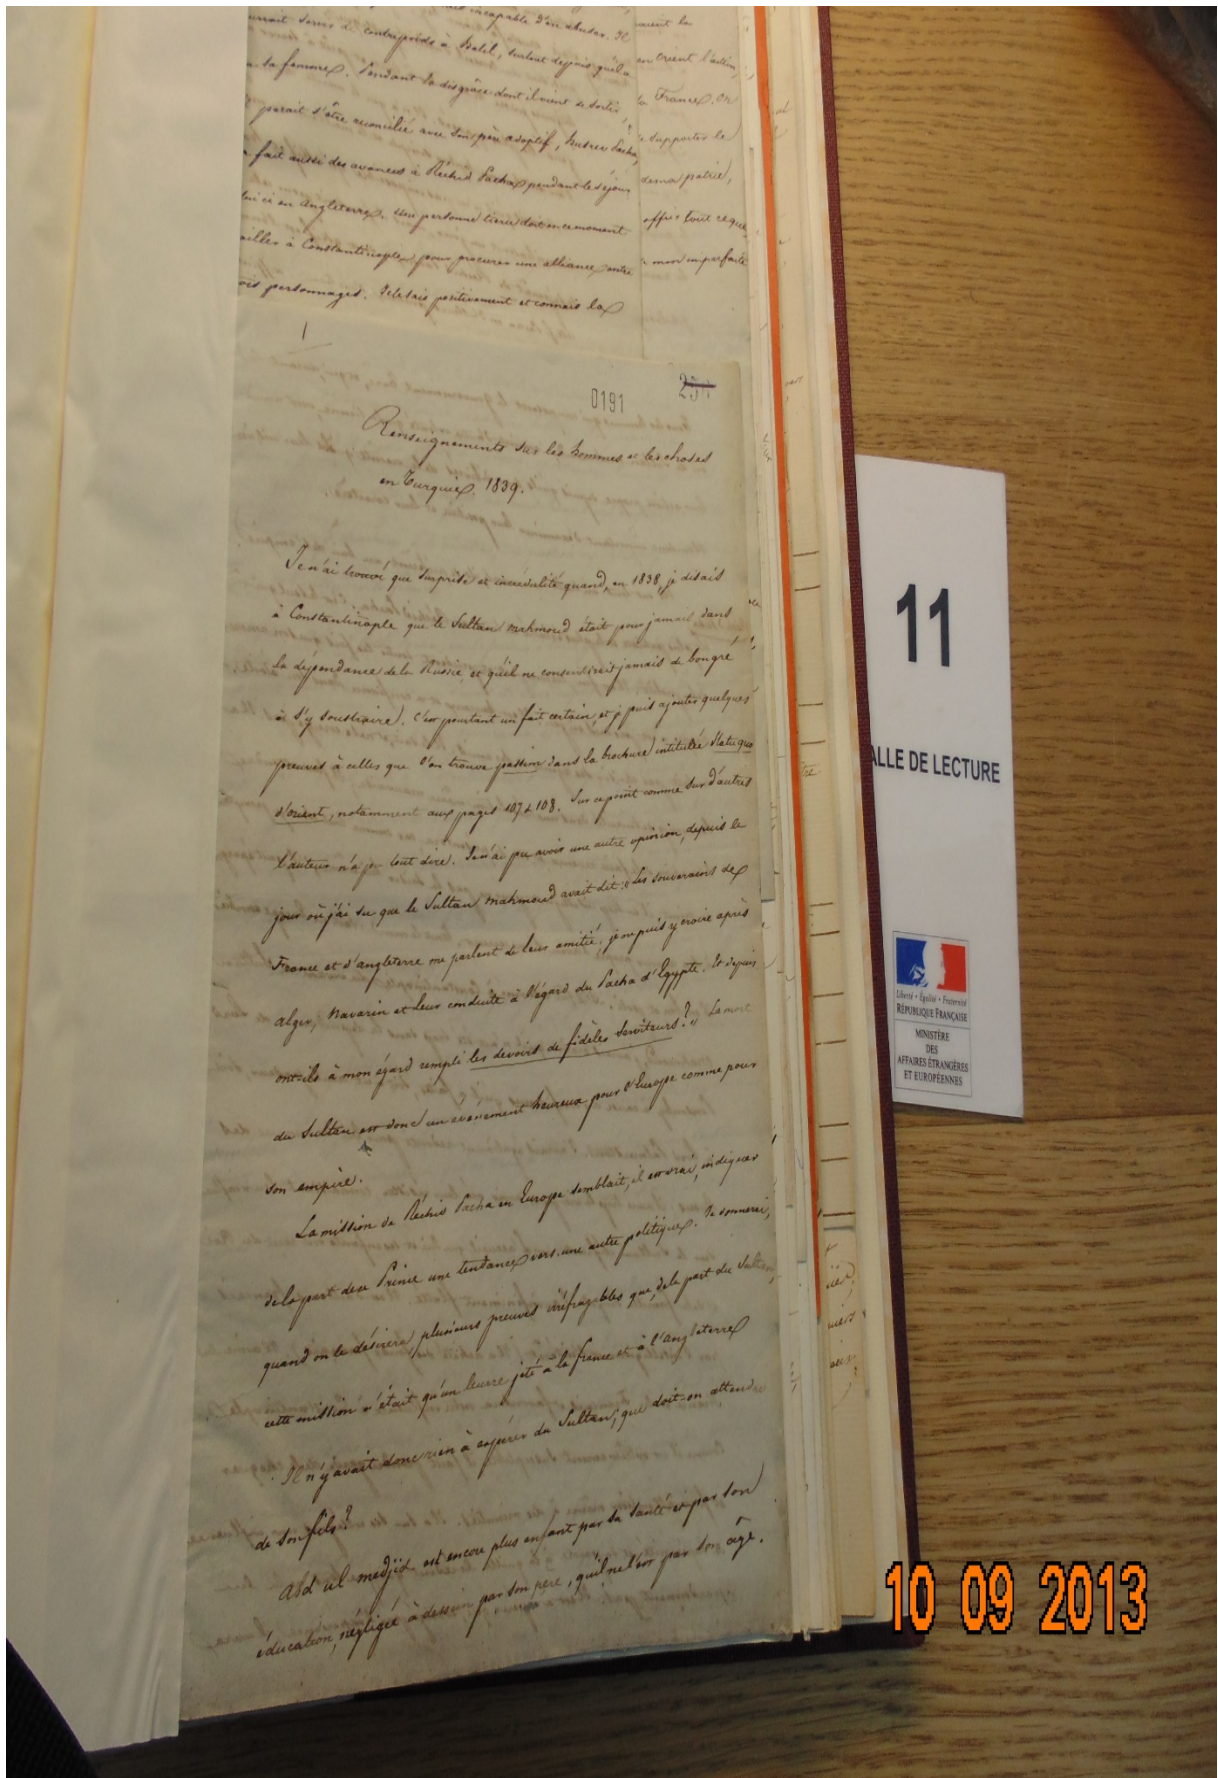 incapable d'en abuser. Il
servir de contrepoids à Halil, surtout depuis qu'il a
sa femme. Pendant la disgrâce dont il vient de sortir
parait s'être reconcilié avec son père adoptif, Husrew Pacha,
fait aussi des avances à Réchid Pacha pendant le séjour
lui ci en Angleterre. Une personne tierce doit en ce moment
à Constantinople pour procurer une alliance entre
personnages. Je le sais positivement et connais la
en Orient l'action
la France. On
supporter le
de ma patrie,
tout ce que
mon imparfaite
0191
Renseignements sur les hommes et les choses
en Turquie. 1839.
Je n'ai trouvé que surprise et incrédulité quand, en 1838, je disais
à Constantinople que le Sultan Mahmoud était pour jamais dans
la dépendance de la Russie, et qu'il ne consentirait jamais de bon gré
à s'y soustraire. C'est pourtant un fait certain, et je puis ajouter quelques
preuves à celles que l'on trouve passim dans la brochure intitulée Statu quo
d'orient, notamment aux pages 107 & 108. Sur ce point comme sur d'autres
l'auteur n'a pu tout dire. Je n'ai pu avoir une autre opinion, depuis le
jour où j'ai su que le Sultan Mahmoud avait dit: "Les souverains de
France et d'angleterre me parlent de leur amitié; je ne puis y croire après
alger, Navarin et leur conduite à l'égard du Pacha d'Egypte. Et depuis
ont-ils à mon égard rempli les devoirs de fidèles serviteurs?" La mort
du Sultan est donc un événement heureux pour l'Europe comme pour
son empire.
La mission de Réchid Pacha en Europe semblait, il est vrai, indiquer
de la part de ce Prince une tendance vers une autre politique. Je donnerai,
quand on le désirera plusieurs preuves irréfragables que, de la part du Sultan,
cette mission n'était qu'un leurre jeté à la france et à l'angleterre
Il n'y avait donc rien à espérer du Sultan; que doit-on attendre
de son fils?
Abd ul medjid est encore plus enfant par sa santé et par son
éducation, négligée à dessein par son père, qu'il ne l'est par son âge.
11
ALLE DE LECTURE
Liberté • Égalité • Fraternité
RÉPUBLIQUE FRANÇAISE
MINISTÈRE
DES
AFFAIRES ÉTRANGÈRES
ET EUROPÉENNES
10 09 2013